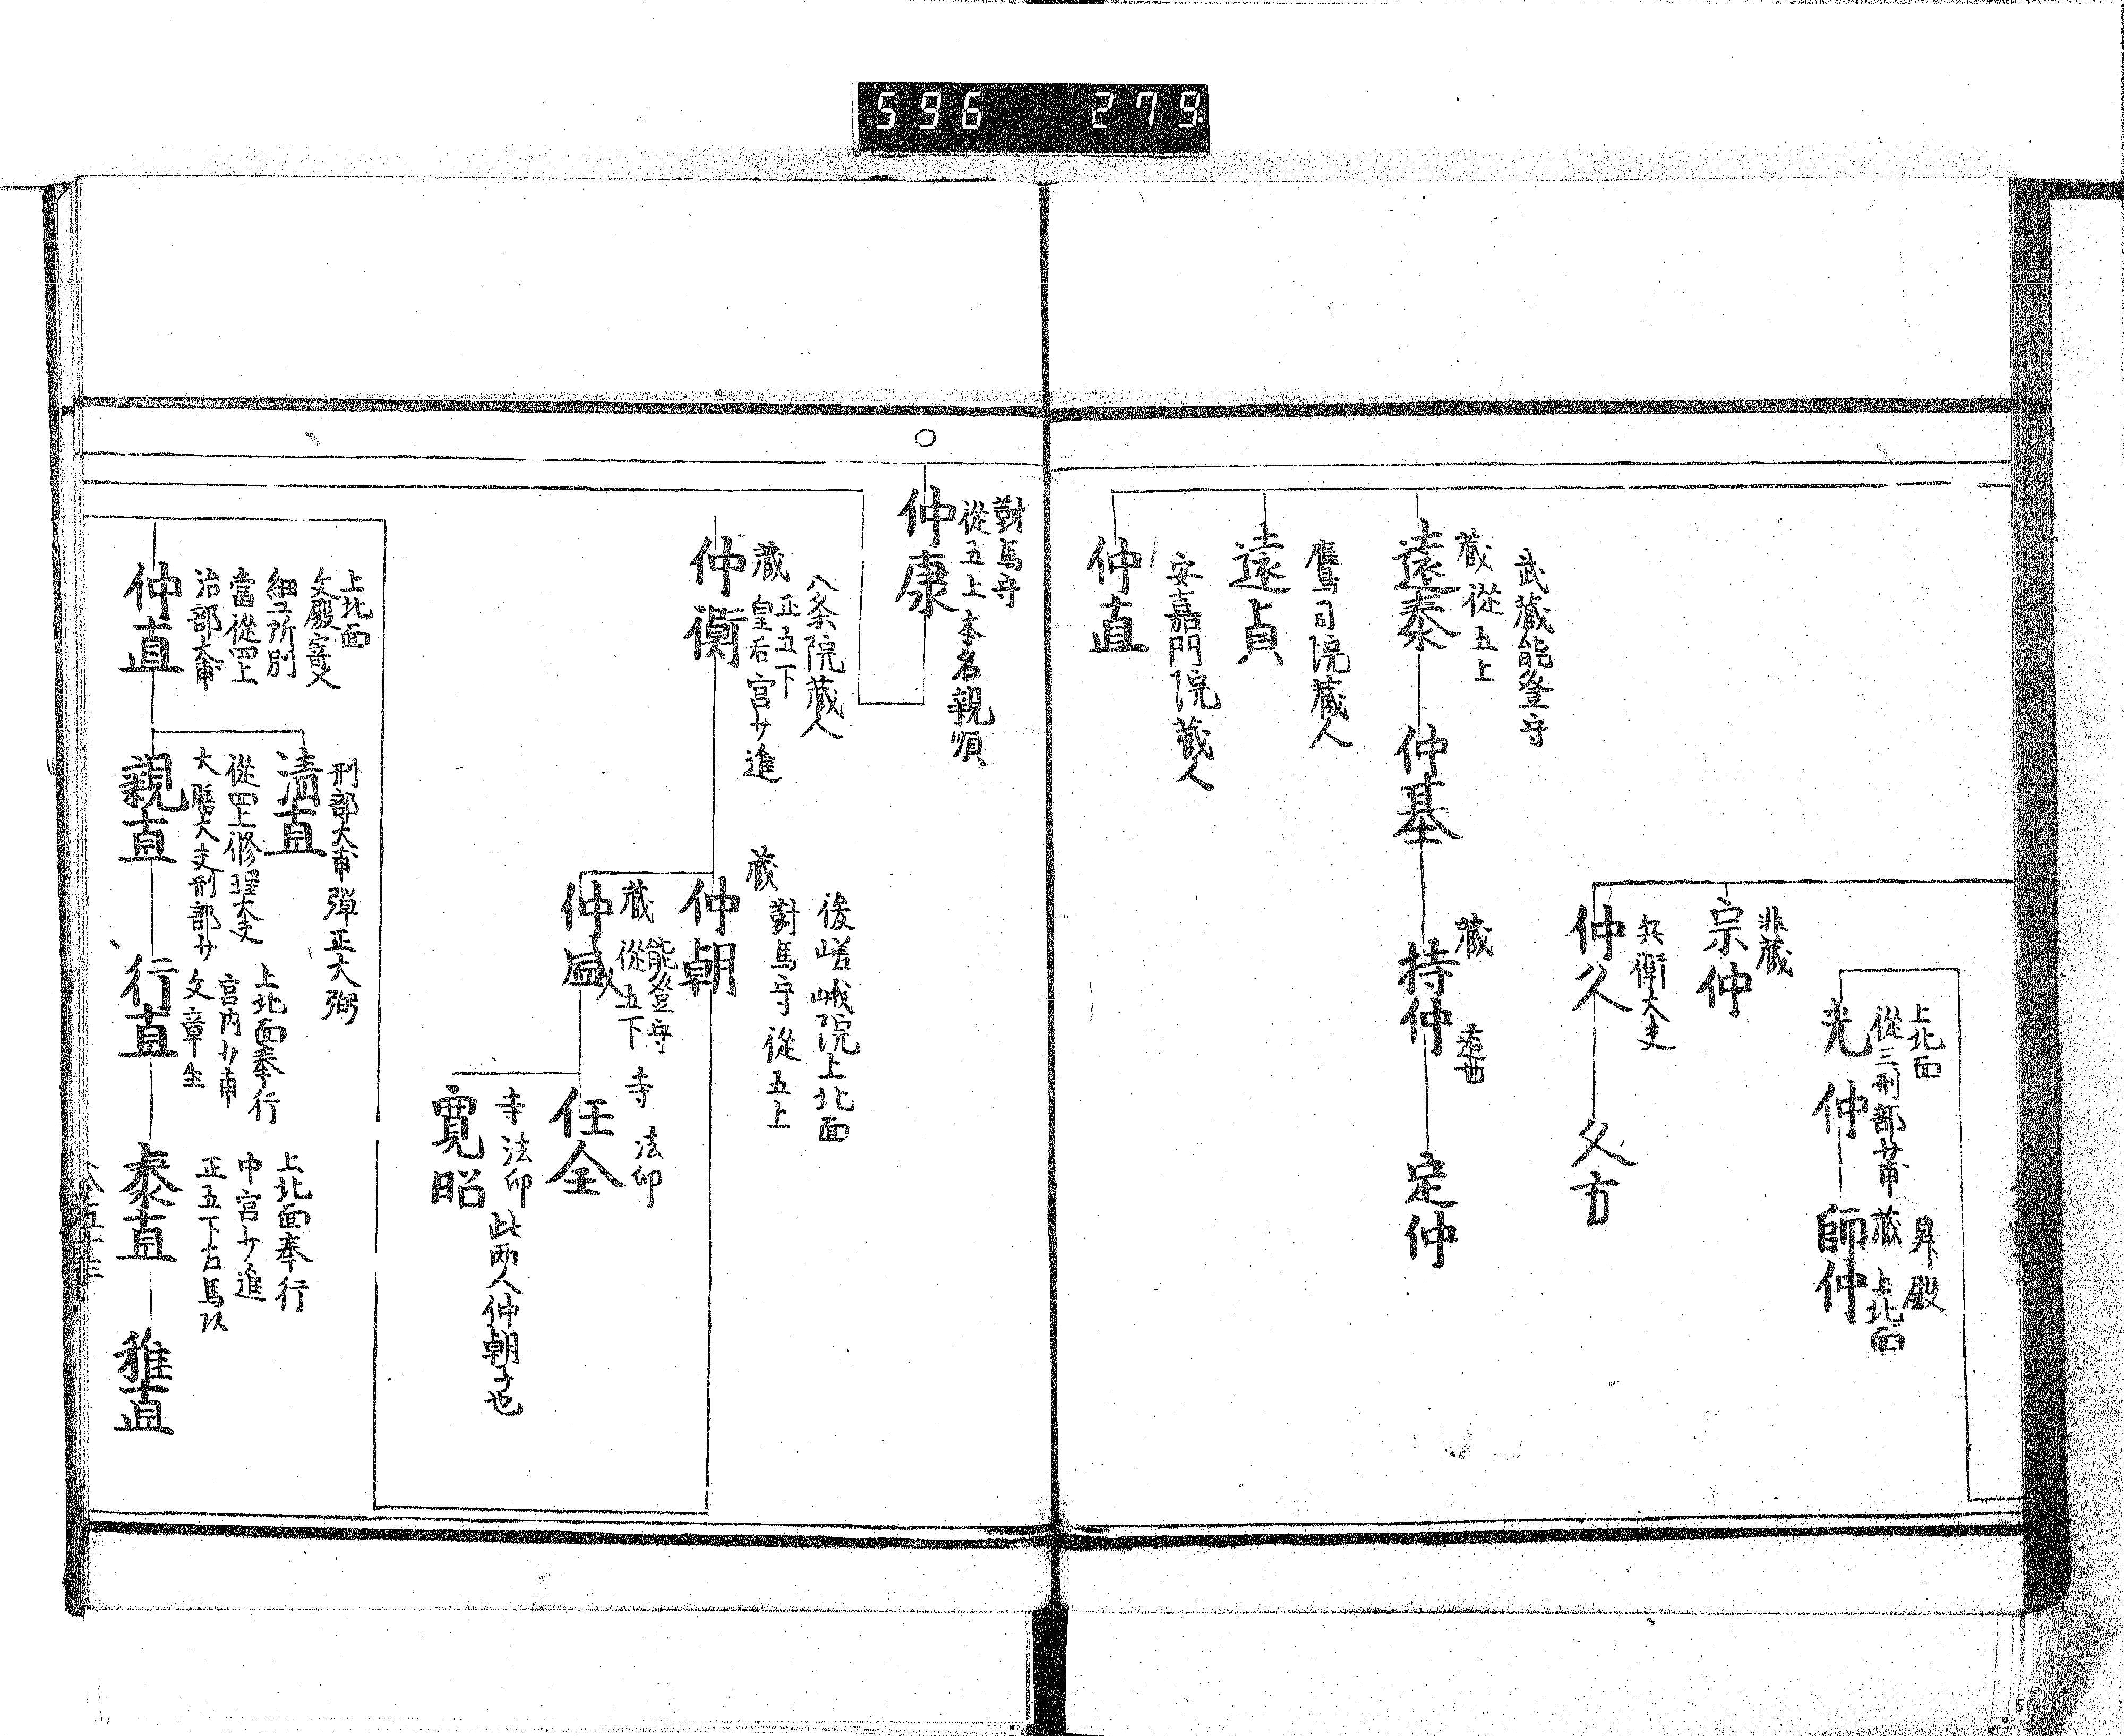 596 279
上北面
從三刑部少甫
光仲
昇殿
藏 上北面
師仲
非藏
宗仲
兵衛大夫
仲久
久方
武藏能登守
藏 從五上
遠泰
仲基
藏
持仲
定仲
鷹司院藏人
遠貞
安嘉門院藏人
仲直
○
對馬守
從五上 本名親順
仲康
八条院藏人
正五下
藏 皇后宮少進
仲衡
後嵯峨院上北面
藏 對馬守 從五上
仲朝
能登守
藏 從五下
仲盛
寺 法印
任全
寺 法印
寛昭
此両人仲朝子也
上北面
文殿寄人
細工所別
當從四上
治部大甫
仲直
刑部大甫 弾正大弼
清直
從四上修理大夫
大膳大夫刑部少
親直
上北面奉行
宮内少甫
文章生
行直
上北面奉行
中宮少進
正五下右馬
泰直
雅直